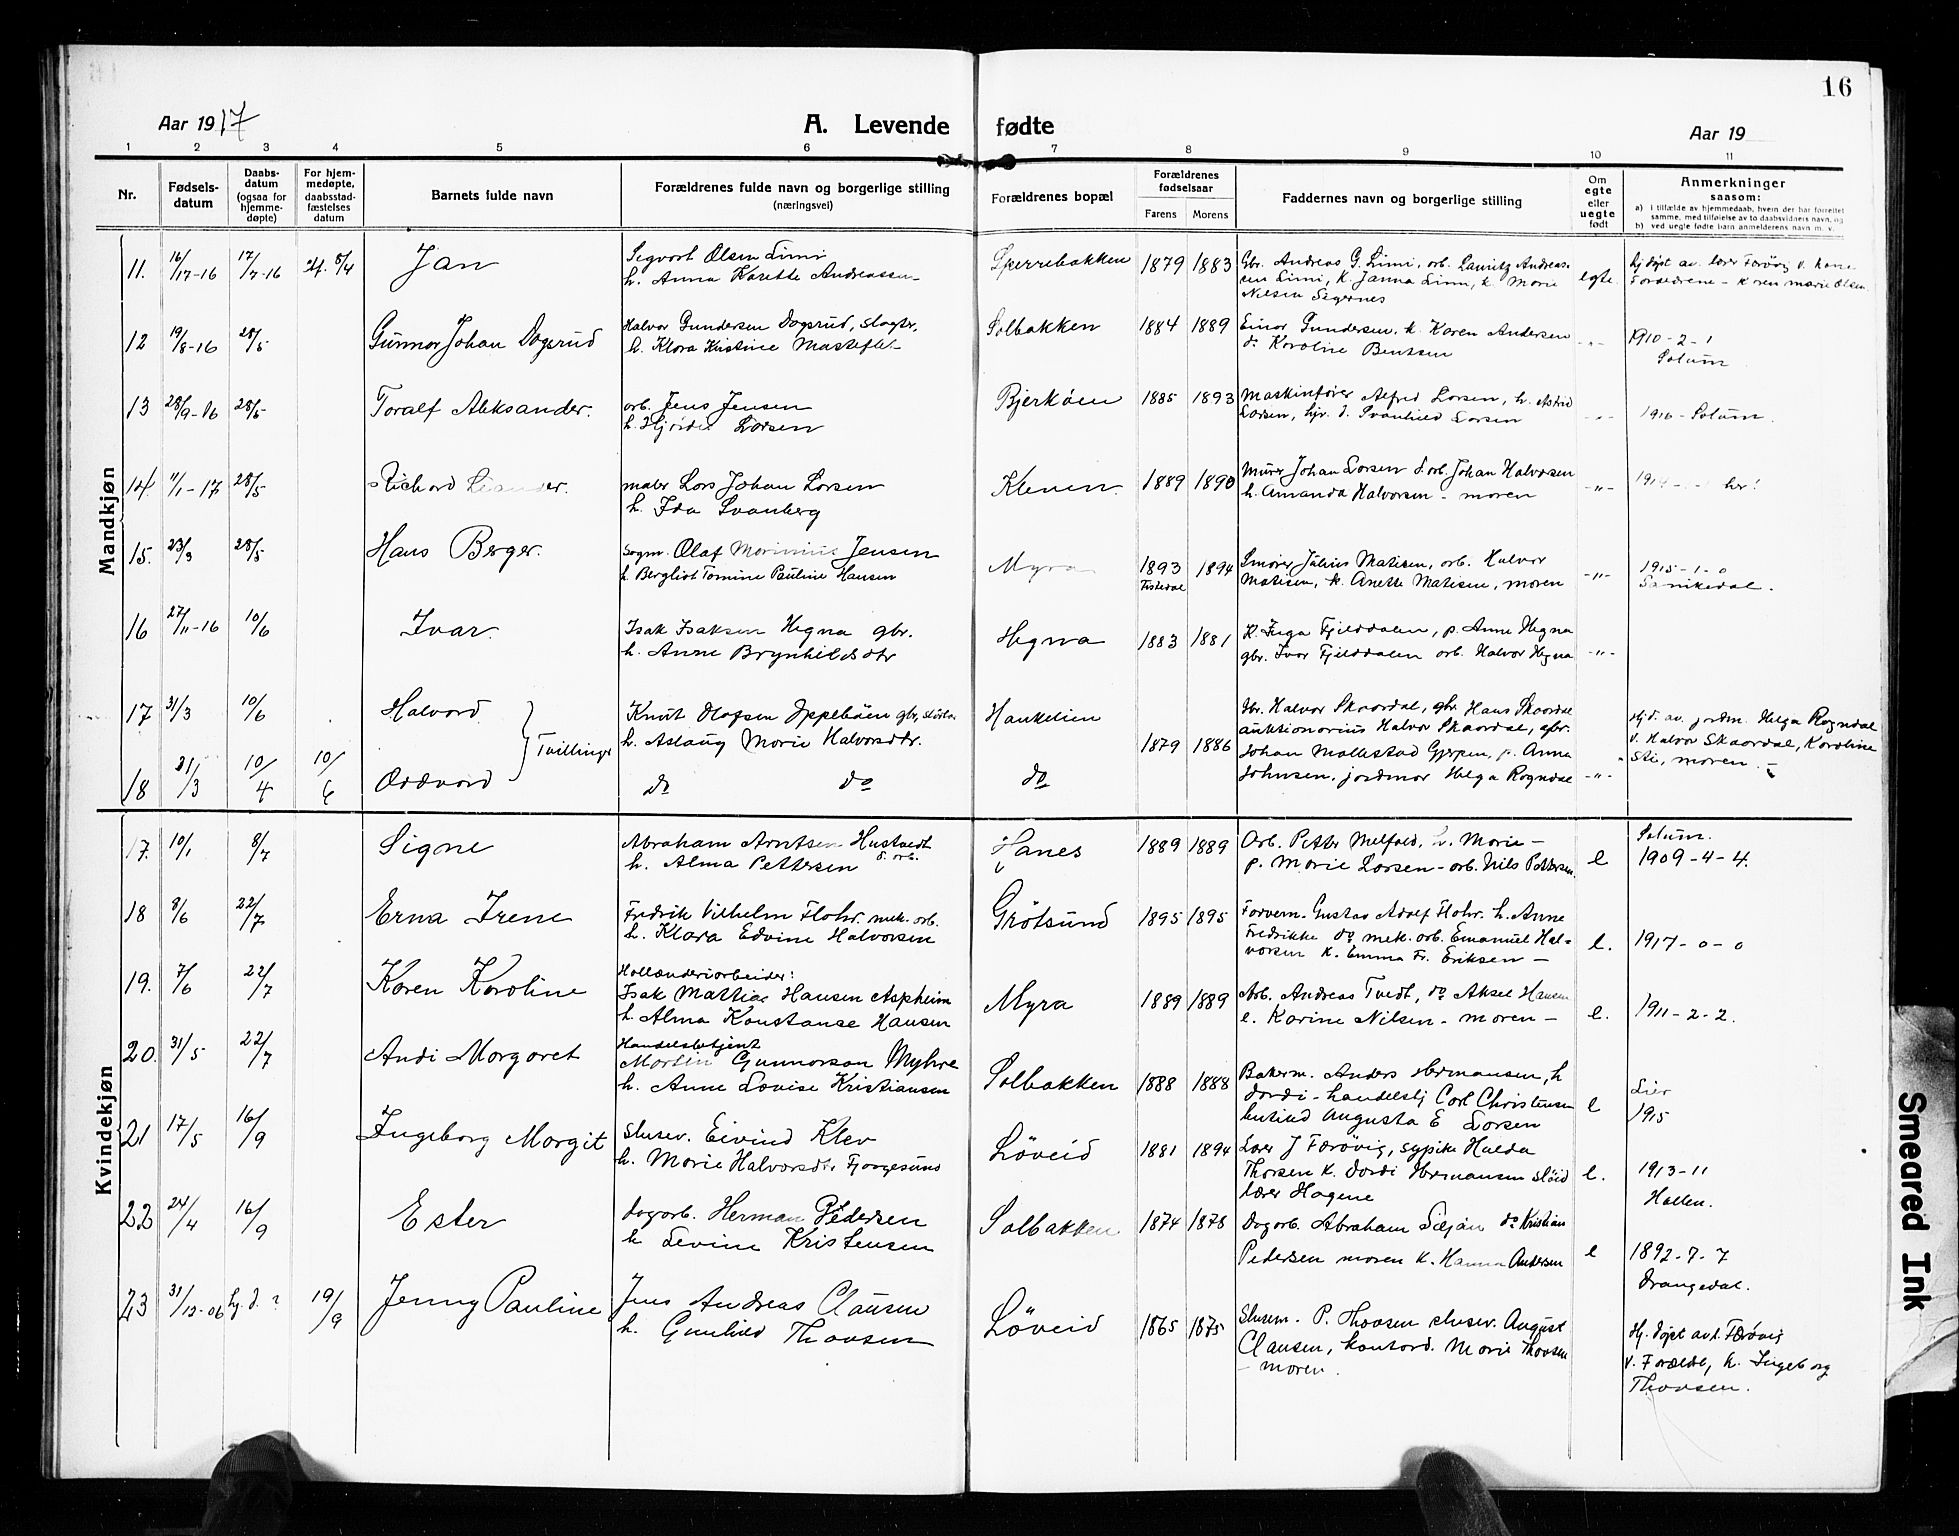 16
Aar 1917
A. Levende fødte
Aar 19
1 2 3 4 5 6 7 8 9 10 11
Nr.
Fødsels-
datum
Daabs-
datum
(ogsaa for
hjemme-
døpte)
For hjem-
medøpte,
daabsstad-
fæstelses
datum
Barnets fulde navn
Forældrenes fulde navn og borgerlige stilling
(næringsvei)
Forældrenes bopæl
Forældrenes
fødselsaar
Farens Morens
Faddernes navn og borgerlige stilling
Om
egte
eller
uegte
født
Anmerkninger
saasom:
a) i tilfælde av hjemmedaab, hvem der har forrettet
samme, med tilføielse av to daabsvidners navn, og
b) ved uegte fødte barn anmelderens navn m. v.
Mandkjøn
11. 16/17-16 17/7-16 Jan
Segvart Olsen Limi
h. Anna Karette Andreassen
Sperrebakken 1879 1883
Gbr. Andreas G. Limi, arb. Lauritz Andreas-
sen Limi, k. Janna Limi, k. Marie
Nilsen Segernes
egte
12 19/8-16 28/5 Gunnar Johan Dagsrud
Halvor Gundersen Dagsrud, slagtr,
h. Klara Kristine
Solbakken 1884 1889
Einar Gundersen, k. Karen Andersen
do Karoline Bentsen
-"-
1910-2-1
Solum
13 28/9-16 28/5 Toralf Aleksander.
arb. Jens Jensen
h. Hjørdis Larsen
Bjerkøen 1885 1893
Maskinfører Alfred Larsen, h. Astrid
Larsen, hjv. d. Svanhild Larsen
-"-
1916 - Solum.
14. 11/1-17 28/5 Richard
maler Lars Johan Larsen
h. Ida Svanberg
Kleven. 1889 1890
Murer Johan Larsen d arb. Johan Halvorsen
h. Amanda Halvorsen - moren
-"-
her!
15. 23/3 28/5 Hans Berger.
sagm. Olaf Marinius Jensen
h. Bergliot Tomine Pauline Hansen
Myra 1893 1894
Fistedal
Smører Julius Matisen, arb. Halvor
Matisen, k. Anette Matisen, moren
-"-
1915-1-0
Sannikedal.
16 27/11-16 10/6 Ivar.
Isak Isaksen Hegna gbr.
h. Anne Brynhildsdtr
Hegna 1883 1881
K. Inga Fjelddalen, p. Anne Hegna
gbr. Ivar Fjelddalen arb. Halvor Hegna
-"-
17 31/3 10/6 Halvard
Tvillinger
Knut Olafsen Oppebøen gbr,
h. Aslaug Marie Halvorsdtr.
Haukelien 1879 1886
Gbr. Halvor Skaardal, gbr Hans Skaardal
auktionarius Halvor Skaardal, gbr.
Johan Mallestad Gjerpen, p. Anna
Johnsen, jordmor Helga Rogndal
-"-
Hj.d. av jordm. Helga Rogndal
v. Halvor Skaardal, Karoline
Sti, moren.
18 31/3 10/4 10/6 Oddvard
do do
do
Kvindekjøn
17. 10/1 8/7 Signe
Abraham Arntsen Hustvedt
h. Alma Pettersen
Hanes 1889 1889
Arb. Petter Melfald, h. Marie -
p. Marie Larsen - arb. Nils Pettersen
e
Solum.
1909-4-4.
18 8/6 22/7 Erna Irene
Fredrik Vilhelm Flohr. mek. arb.
h. Klara Edvine Halvorsen
Grøtsund 1895 1895
Forvem. Gustav Adolf Flohr. h. Anne
Fredrikke do mek. arb. Emanuel Hal-
vorsen k. Emma Fr. Eriksen -
e.
1917-0-0
19. 7/6 22/7 Karen Karoline
Hollænderiarbeider:
Isak Mattias Hansen Aspheim
h. Alma Konstanse Hansen
Myra 1889 1889
Arb. Andreas Tvedt, do Aksel Hansen
e. Karine Nilsen - moren -
e.
1911-2-2.
20. 31/5 22/7 Andi Margaret
Handelsbetjent
Martin Gunnarson Myhre
h. Anne Lovise Kristiansen
Solbakken 1888 1888
Bakerm. Anders Hermansen, h
Dordi - handelsbj Carl Christensen
butikd Augusta E Larsen
e
Lier
1915
21 17/5 16/9 Ingeborg Margit
Slusev. Eivind Klev
h. Marie Halvorsdtr
Løveid 1881 1894
Lærer J Færøvig, sypike Hulda
Thorsen k. Dordi Hermansen sløid
lærer Hagene
e.
1913-11
Hollen.
22 24/4 16/9 Ester
Dagarb. Herman Pedersen
h Levine Kristensen
Solbakken 1874 1878
Dagarb. Abraham Siljan do Kristian
Pedersen moren k. Hanna Andersen
e
1892-7-7
Drangedal.
23 31/12-06 hj. d. ? 19/9 Jenny Pauline
Jens Andreas Clausen
h. Gunhild Thovsen
Løveid 1865 1875
Slusem. P. Thovsen slusev. August
Clausen, kontord. Marie Thovsen
- moren.
Hj. døpt av l. Færøvig
v. Forældr, h. Ingeborg
Thovsen.
Smeared Ink